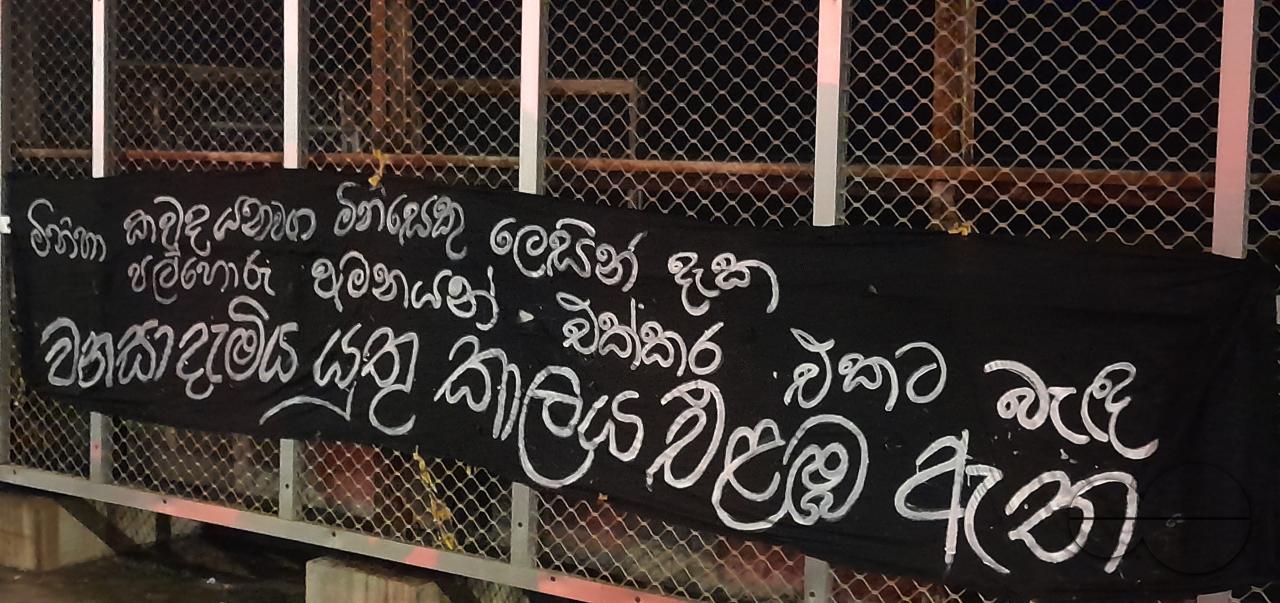 මිනිහා කවුද යනවග මිනිසෙකු ලෙසින් දැක
පල්හොරු අමනයන් එක්කර එකට බැඳි
වනසාදැමිය යුතු කාලය එළඹ ඇත